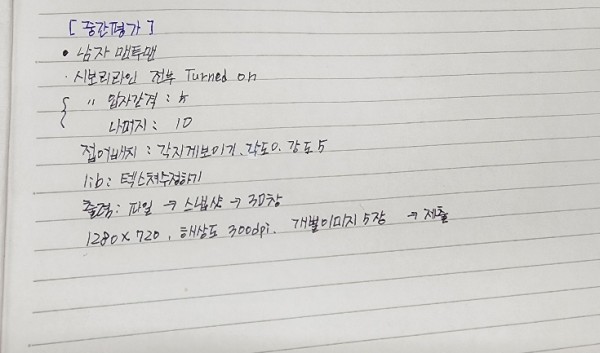 [중간평가]
• 남자 맨투맨
· 시보리라인 전부 Turned on
{ " 입자간격 : 5
나머지 : 10
접어배치 : 각지게보이기, 각도0, 강도5
lib : 텍스쳐수정하기
출력 : 파일 → 스냅샷 → 3D창
1280 x 720, 해상도 300dpi, 개별이미지 5장 → 제출